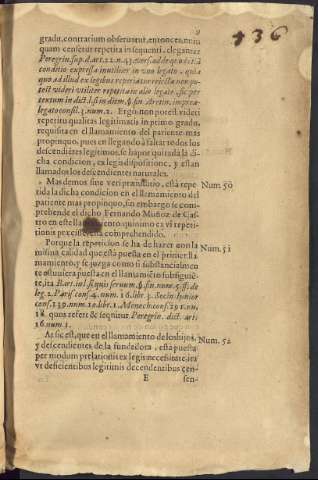 9
136
gradu, contrarium observatur, entonces, nun
quam censetur repetita in sequenti, eleganter
Peregrin. sup. d. art. 22. n. 43. vers. ad de quod sit, à
conditio expressa inutiliter in uno legato, quia
quo ad illud ex legibus reperiatur reiecta non po-
test videri utiliter repetita in alio legato, sic per
textum in dict. l. si in ditem. §. fin. Aretin. in præa-
legato consil. 3. num. 2. Ergo non potest videri
repetita qualitas legitimatis in primo grado,
requisita en el llamamiento del pariente mas
propinquo, pues en llegando à faltar todos los
descendiẽtes legitimos, se hà por quitada la di-
cha condicion, ex legis dispositione, y estan
llamados los descendientes naturales.
Mas demos sine veri præiuditio, està repe
Num. 50
tida la dicha condicion en el llamamiento del
pariente mas propinquo, sin embargo se com-
prehende el dicho Fernando Muñoz de Cas-
tro en este llamamiento, quinimo ex vi repeti-
tionis præcise venia comprehendido.
Porque la repeticion se ha de hazer con la
Num. 51
misma calidad que està puesta en el primer lla
mamiento, y se juzga como si substancialmen
te estuviera puesta en el llamamiẽto subsiguiẽ-
te, ita Bart. in l. si quis servum. §. fin. num. 5. ff. de
leg. 2. Paris. cons. 4. num. 16. libr. 3. Socin. Iunior
cons. 139. num. 10. libr. 1. Menoch. cons. 291. nu.
18. quos refert & sequitur Peregrin. dict. art.
16. num. 1.
At sic est, que en el llamamiento de los hijos,
Num. 52
y descendientes de la fundadora, està puesta
per modum prelationis ex legis necesitate, ita
vt deficientibus legitimis decendentibus cen-
E
sen-